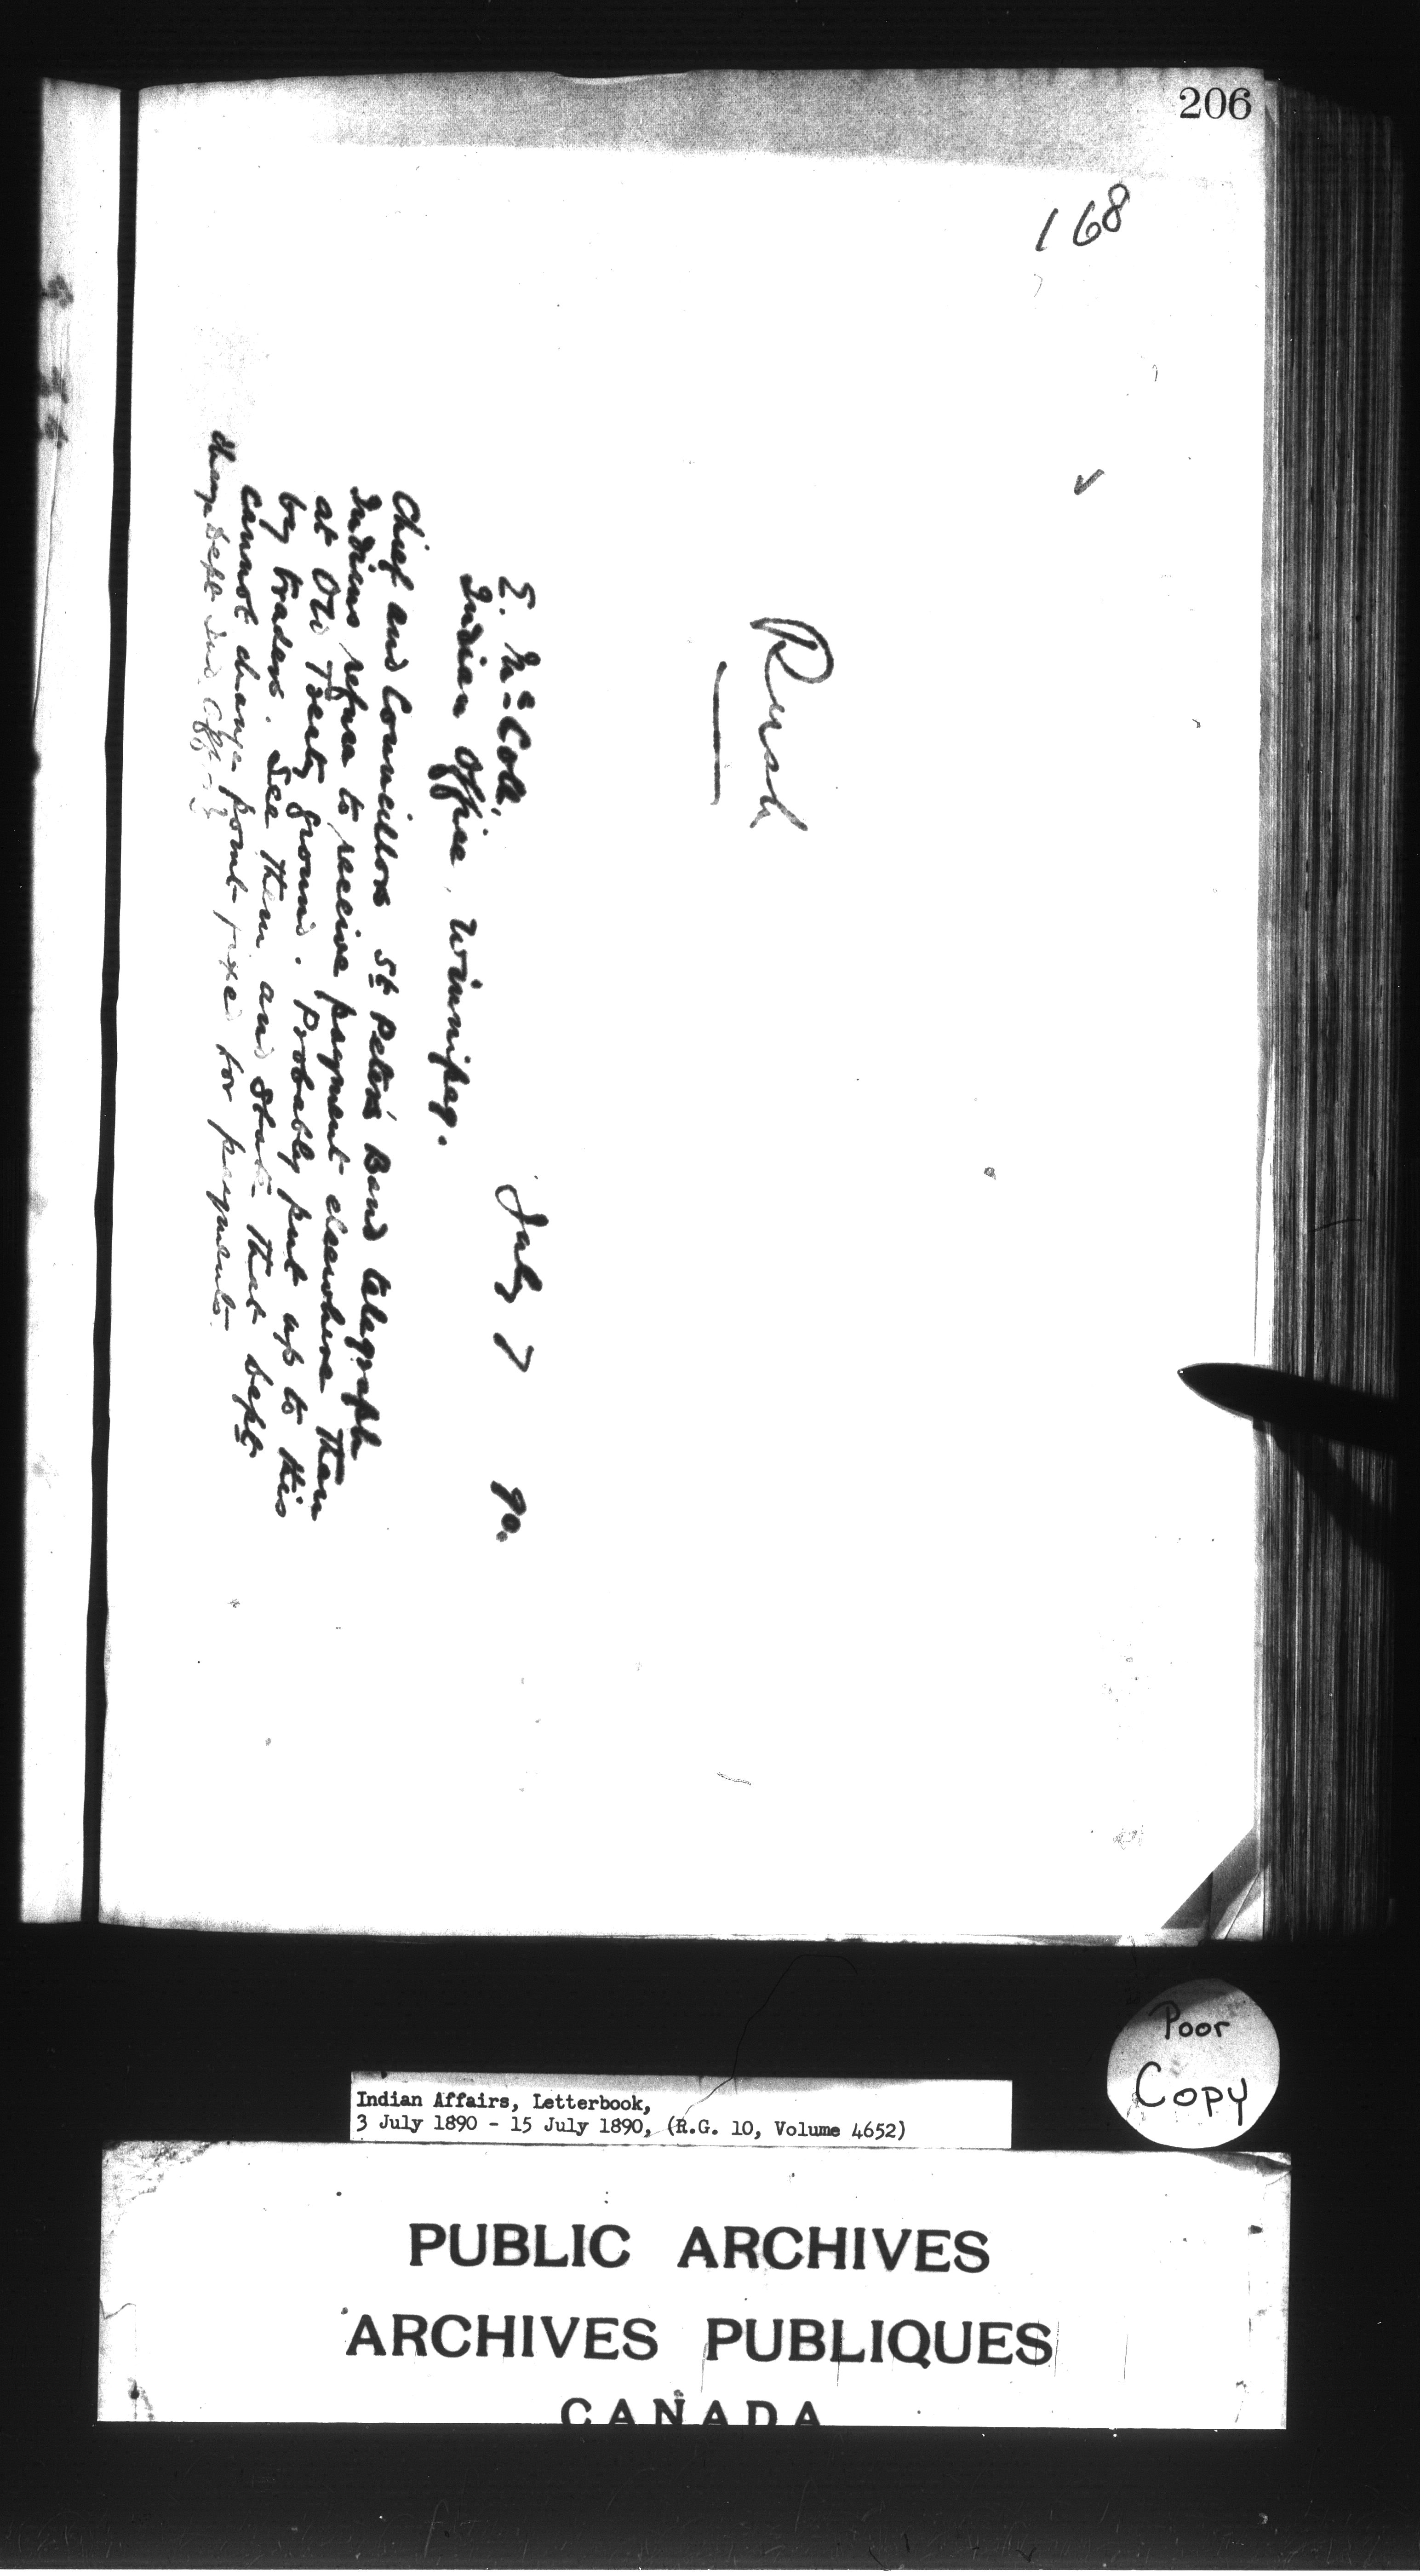 206
168
✓
Rush
July 7 90.
E. McColl,
Indian Office, Winnipeg.
Chief and Councillors St Peter's Band telegraph
Indians refuse to receive payment elsewhere than
at Old Treaty ground. Probably put up to this
by traders. See them and state that Dept
cannot change point fixed for payments.
Charge Dept Ind. Aff
Poor
Copy
Indian Affairs, Letterbook,
3 July 1890 - 15 July 1890, (R.G. 10, Volume 4652)
PUBLIC ARCHIVES
ARCHIVES PUBLIQUES
CANADA